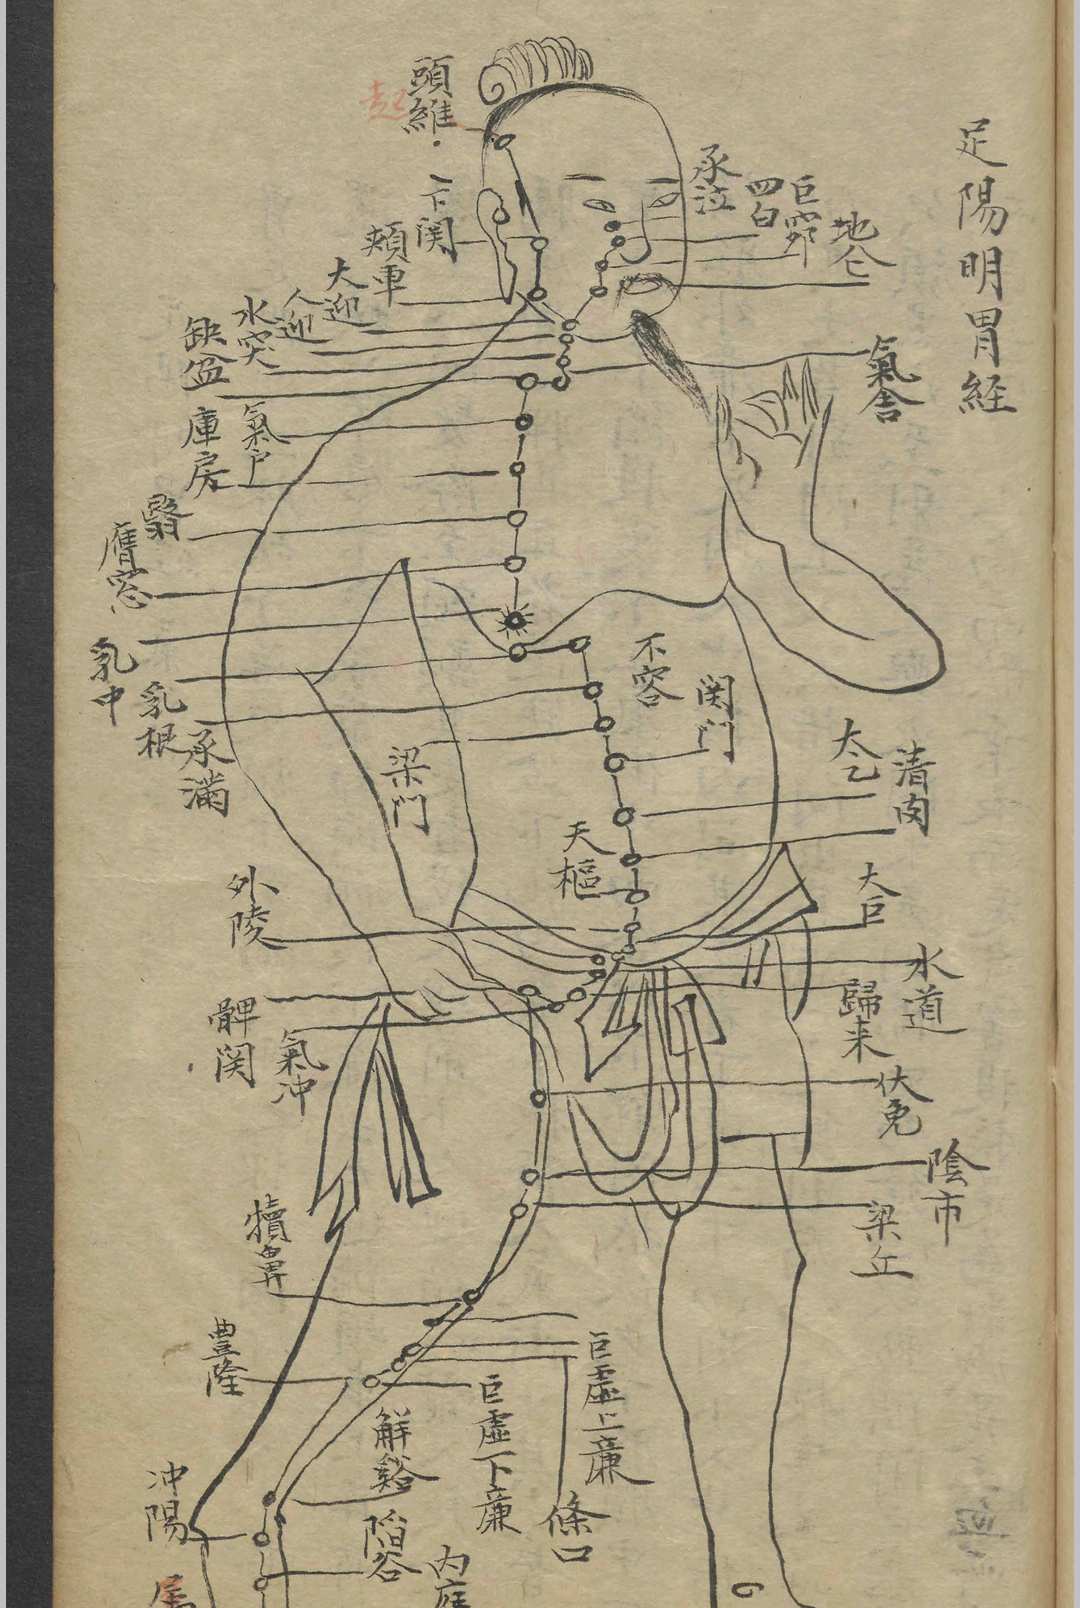 足陽明胃経
承泣
四白
巨窌
地仓
氣舎
頭維
起
下関
頬車
大迎
人迎
水突
缺盆
氣户
庫房
翳
膺窓
乳中
乳根
承満
不容
関门
梁门
太乙
滑肉
天樞
外陵
大巨
水道
歸来
髀関
氣冲
伏免
陰市
梁丘
犢鼻
巨虛上廉
豊隆
巨虛下廉
條口
解谿
冲陽
陷谷
内庭